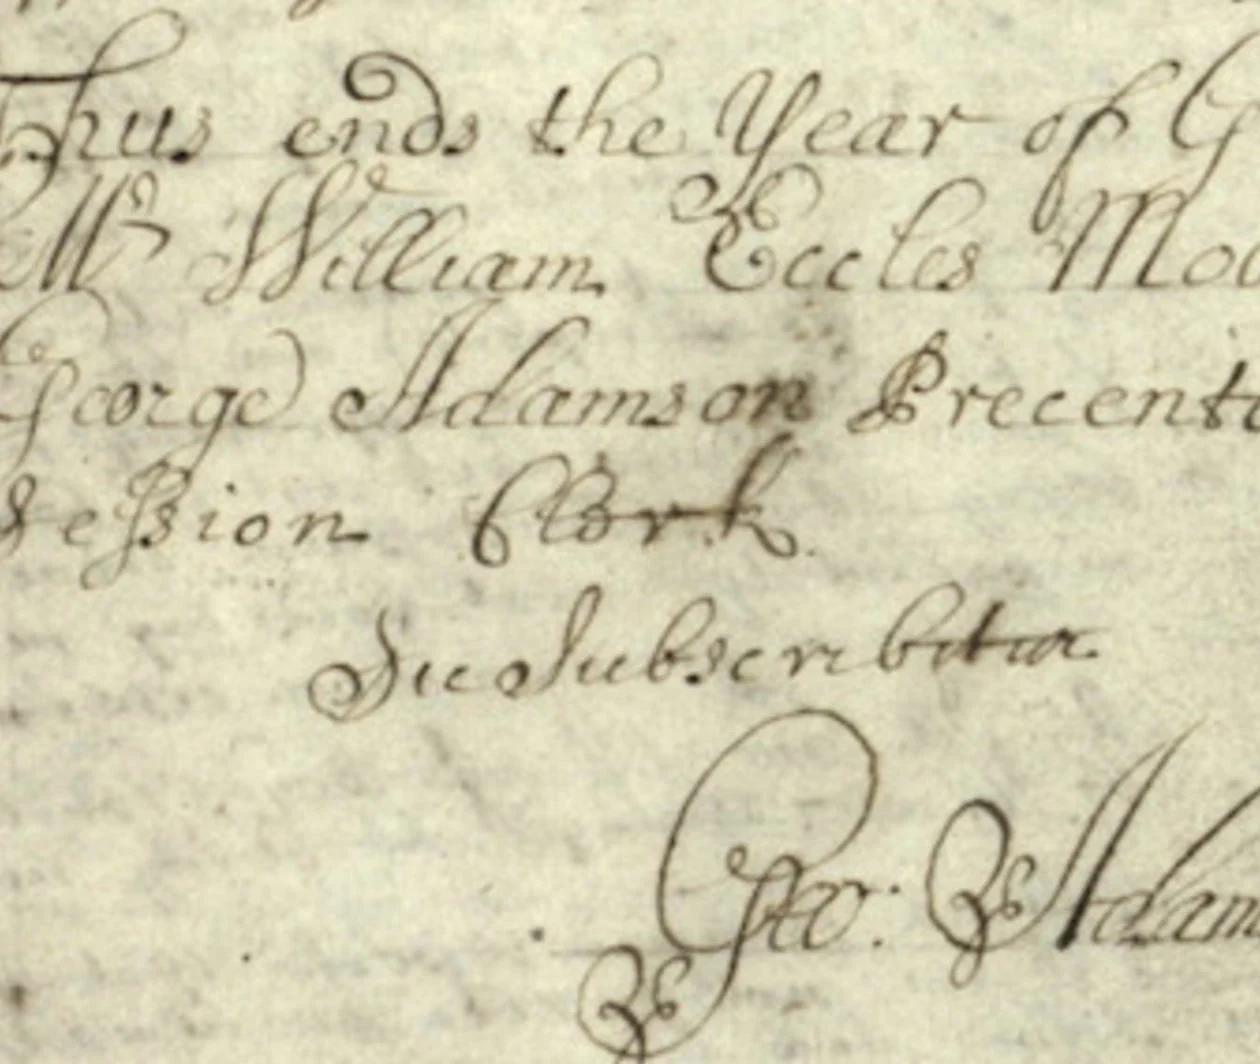 Thus ends the Year of G
Mr William Eccles Mod
George Adamson Precento
Session Clerk
Sic Subscribitur
Geo: Adam